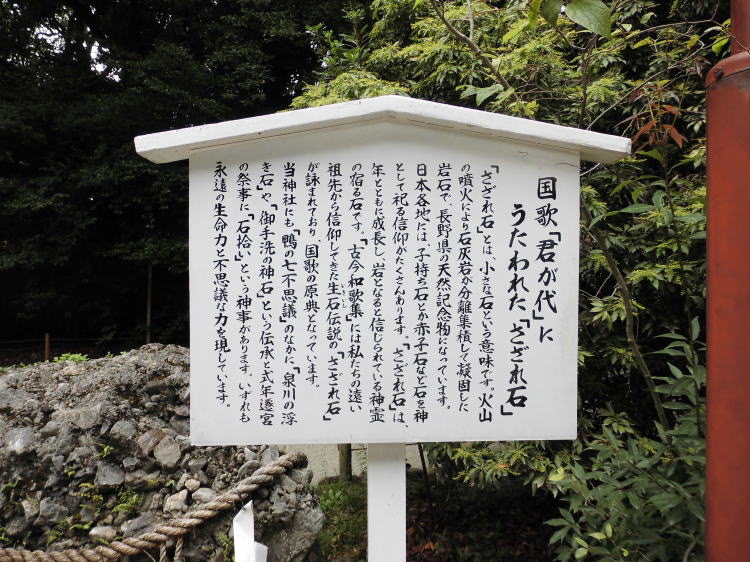 国歌「君が代」に
うたわれた、「さざれ石」
「さざれ石」とは、小さな石という意味です。火山
の噴火により石灰岩が分離集積して凝固した
岩石で、長野県の天然記念物になっています。
日本各地には、子持ち石とか赤子石など石を神
として祀る信仰がたくさんあります。「さざれ石」は、
年とともに成長し、岩となると信じられている神霊
の宿る石です。「古今和歌集」には私たちの遠い
祖先から信仰してきた生石伝説の「さざれ石」
いきいし
が詠まれており、国歌の原典となっています。
当神社にも「鴨の七不思議」のなかに、「泉川の浮
き石」や、「御手洗の神石」という伝承と式年遷宮
の祭事に「石拾い」という神事があります。いずれも
永遠の生命力と不思議な力を現しています。